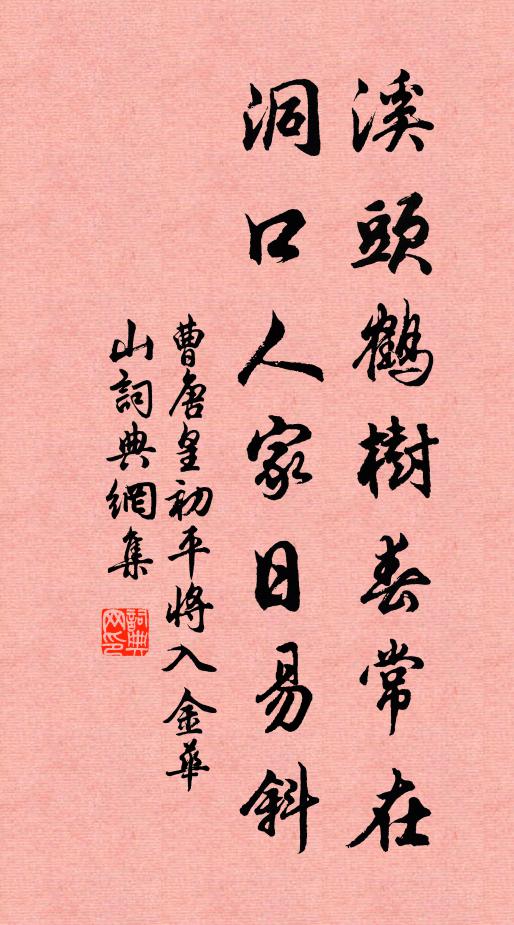 溪頭鶴樹春常在
洞口人家日易斜
曹唐皇初平將入金華
山詞典網集
詞典網印